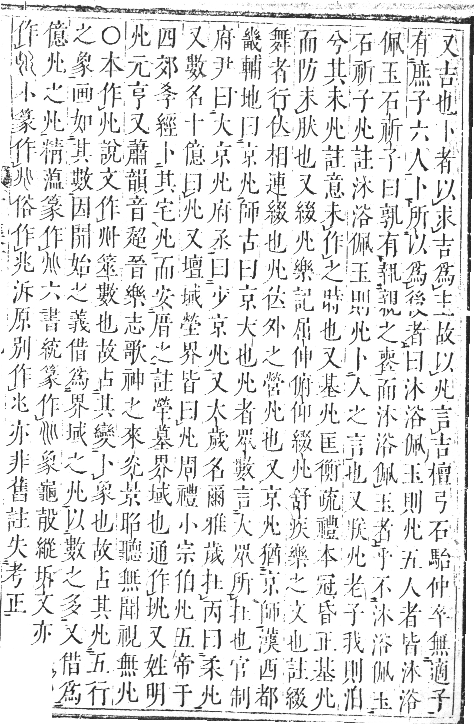 又吉也卜者以求吉為主故以兆言吉檀弓石駘仲卒無適子
有庶子六人卜所以為後者曰沐浴佩玉則兆五人者皆沐浴
佩玉石祈子曰孰有執親之喪而沐浴佩玉者乎不沐浴佩玉
石祈子兆註沐浴佩玉則兆卜人之言也又朕兆老子我則泊
兮其未兆註意未作之時也又基兆匡衡疏禮本冠昏正基兆
而防未朕也又綴兆樂記屈伸俯仰綴兆舒疾樂之文也註綴
舞者行位相連綴也兆位外之營兆也又京兆猶京師漢西都
畿輔地曰京兆師古曰京大也兆者眾數言大眾所在也官制
府尹曰大京兆府丞曰少京兆又太歲名爾雅歲在丙曰柔兆
又數名十億曰兆又壇域塋界皆曰兆周禮小宗伯兆五帝于
四郊孝經卜其宅兆而安厝之註塋墓界域也通作垗又姓明
兆元亨又蕭韻音迢晉樂志歌神之來光景昭聽無聞視無兆
○本作兆說文作筮數也故占其變卜象也故占其兆五行
之象画如其數因開始之義借為界域之兆以數之多又借為
億兆之兆精薀篆作六書統篆作象龜殼縱坼文亦
作小篆作俗作兆泝原別作亦非舊註失考正